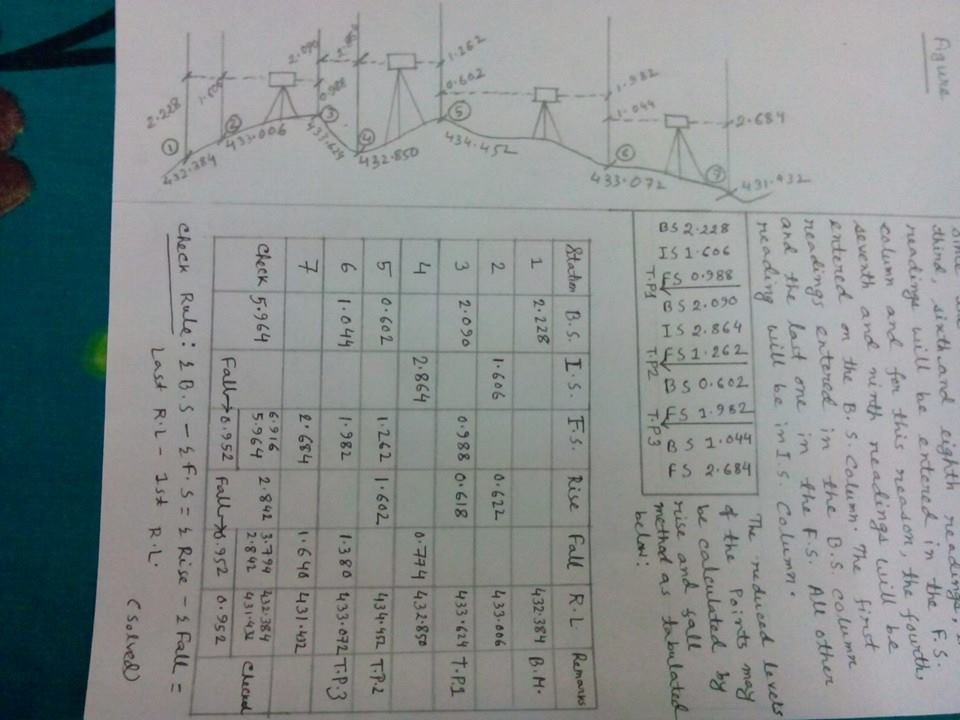 third, sixth and eighth readings,
readings will be entered in the F.S.
column and for this reason, the fourth,
seventh and ninth readings will be
entered on the B.S. column. The first
readings entered in the B.S. column
and the last one in the F.S. All other
reading will be in I.S. Column.
BS 2.228
IS 1.606
T.P1 FS 0.988
BS 2.090
IS 2.864
T.P2 FS 1.262
BS 0.602
T.P3 FS 1.982
BS 1.044
FS 2.684
The reduced levels
of the Points may
be calculated by
rise and fall
method as tabulated
below:
Station B.S. I.S. F.S. Rise Fall R.L Remarks
1 2.228 432.384 B.M.
2 1.606 0.622 433.006
3 2.090 0.988 0.618 433.624 T.P1
4 2.864 0.774 432.850
5 0.602 1.262 1.602 434.452 T.P.2
6 1.044 1.982 1.380 433.072 T.P.3
7 2.684 1.640 431.432
Check 5.964 6.916 2.842 3.794 432.384 Checked
5.964 2.842 431.432
Fall→0.952 Fall→0.952 0.952
Check Rule: Σ B.S - Σ F.S = Σ Rise - Σ Fall =
Last R.L - 1st R.L.
(Solved)
Figure
2.228
1.606
2.090
0.988
1.262
0.602
1.982
1.044
2.684
1
2
3
4
5
6
7
432.384
433.006
433.624
432.850
434.452
433.072
431.432